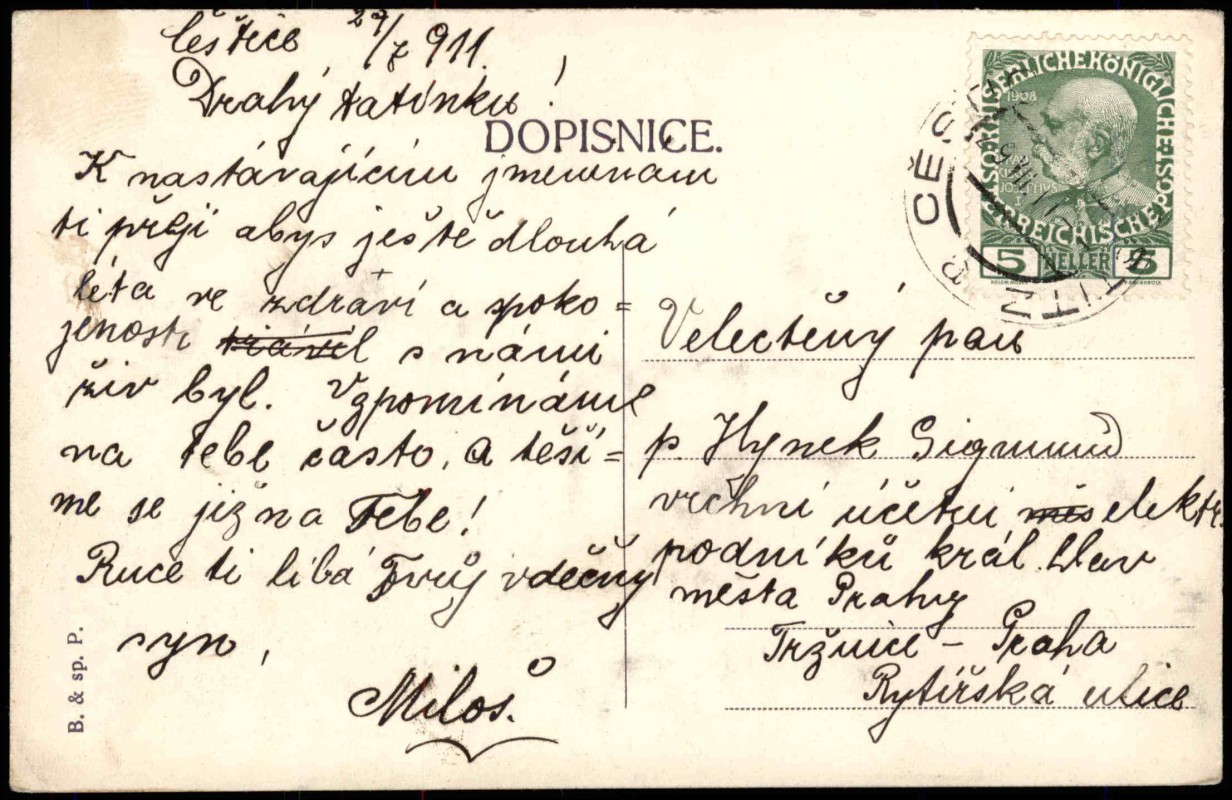 Čěštice 29/7 911.
Drahý tatínku!
DOPISNICE.
K nastávajícím jmeninám
ti přeji abys ještě dlouhá
léta ve zdraví a spoko=
jenosti s námi
živ byl. Vzpomínáme
na tebe často, a těší=
me se již na Tebe!
Ruce ti líbá Tvůj vděčný
syn,
Miloš.
B. & sp. P.
KAISERLICHE KÖNIGLICHE
ÖSTERREICHISCHE POST
1908
5 HELLER 5
Velectěný pan
p. Hynek Sigmund
vrchní účetní elektr.
podniků král. hlav
města Prahy
Tržnice – Praha
Rytířská ulice